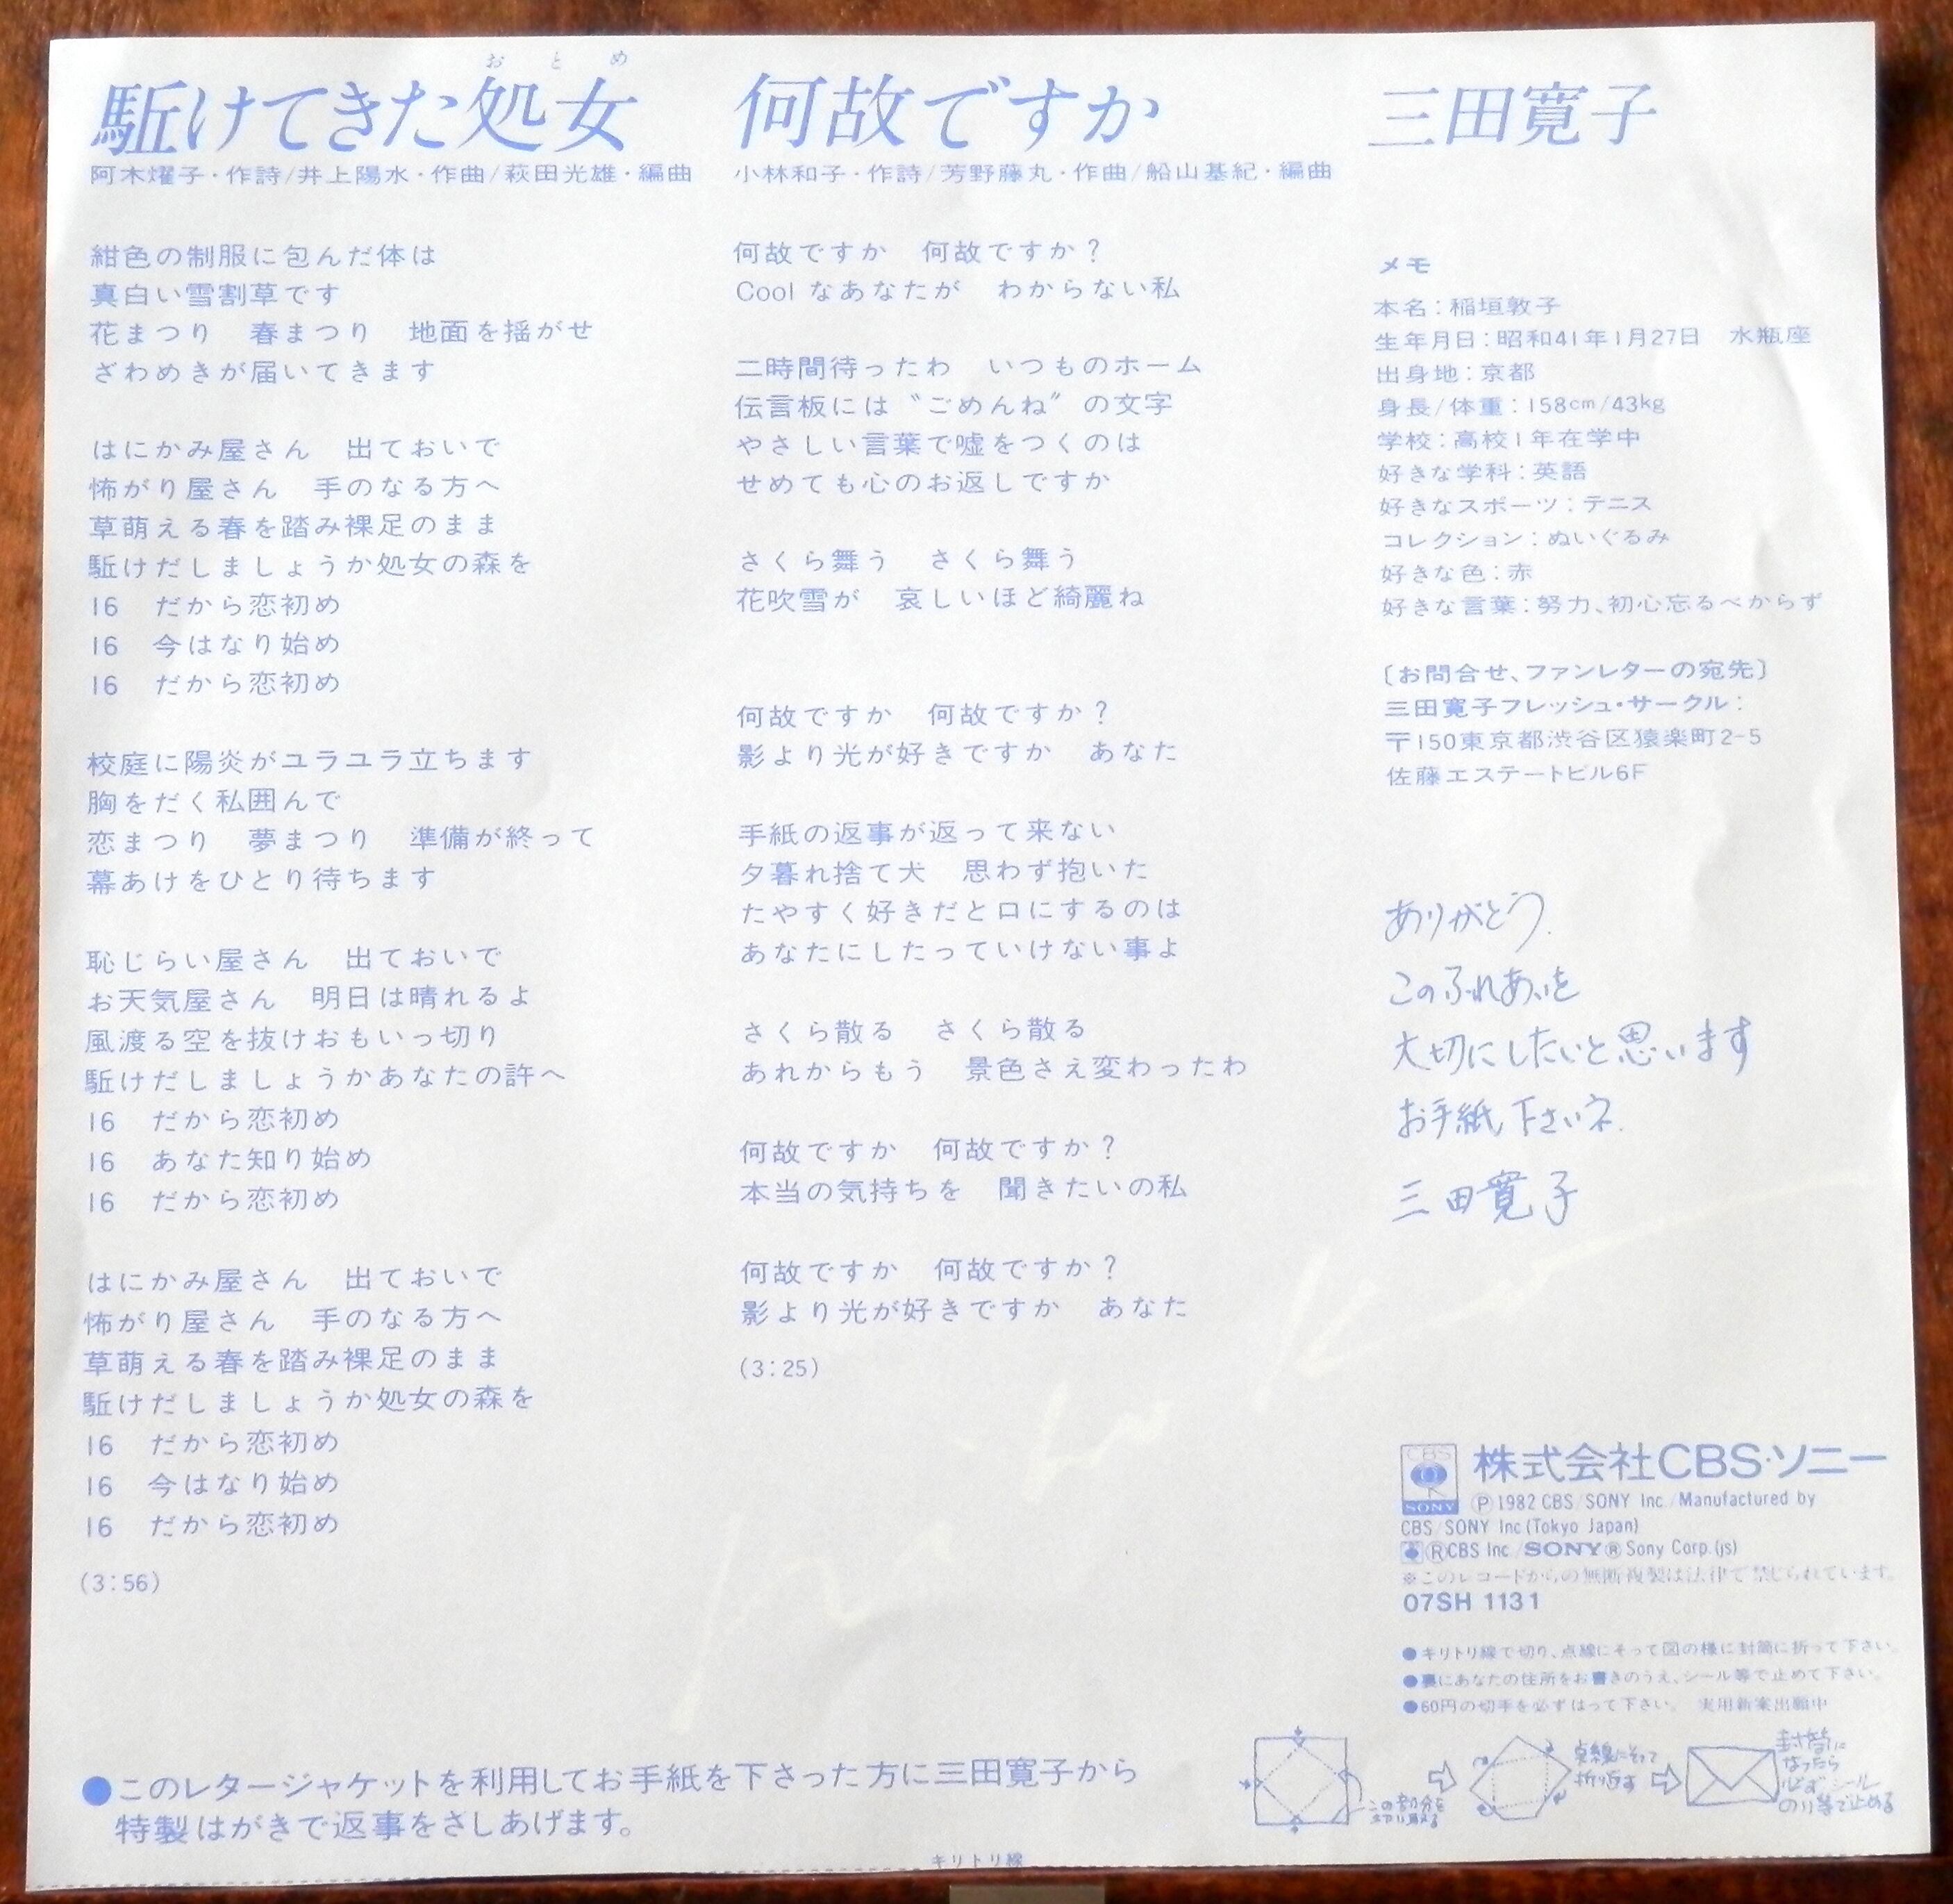 おとめ
駈けてきた処女
阿木燿子・作詩/井上陽水・作曲/萩田光雄・編曲
紺色の制服に包んだ体は
真白い雪割草です
花まつり　春まつり　地面を揺がせ
ざわめきが届いてきます
はにかみ屋さん　出ておいで
怖がり屋さん　手のなる方へ
草萌える春を踏み裸足のまま
駈けだしましょうか処女の森を
16　だから恋初め
16　今はなり始め
16　だから恋初め
校庭に陽炎がユラユラ立ちます
胸をだく私囲んで
恋まつり　夢まつり　準備が終って
幕あけをひとり待ちます
恥じらい屋さん　出ておいで
お天気屋さん　明日は晴れるよ
風渡る空を抜けおもいっ切り
駈けだしましょうかあなたの許へ
16　だから恋初め
16　あなた知り始め
16　だから恋初め
はにかみ屋さん　出ておいで
怖がり屋さん　手のなる方へ
草萌える春を踏み裸足のまま
駈けだしましょうか処女の森を
16　だから恋初め
16　今はなり始め
16　だから恋初め
(3:56)
何故ですか
小林和子・作詩/芳野藤丸・作曲/船山基紀・編曲
何故ですか　何故ですか？
Cool なあなたが　わからない私
二時間待ったわ　いつものホーム
伝言板には〝ごめんね〟の文字
やさしい言葉で嘘をつくのは
せめても心のお返しですか
さくら舞う　さくら舞う
花吹雪が　哀しいほど綺麗ね
何故ですか　何故ですか？
影より光が好きですか　あなた
手紙の返事が返って来ない
夕暮れ捨て犬　思わず抱いた
たやすく好きだと口にするのは
あなたにしたっていけない事よ
さくら散る　さくら散る
あれからもう　景色さえ変わったわ
何故ですか　何故ですか？
本当の気持ちを　聞きたいの私
何故ですか　何故ですか？
影より光が好きですか　あなた
(3:25)
三田寛子
メモ
本名：稲垣敦子
生年月日：昭和41年1月27日　水瓶座
出身地：京都
身長/体重：158cm/43kg
学校：高校1年在学中
好きな学科：英語
好きなスポーツ：テニス
コレクション：ぬいぐるみ
好きな色：赤
好きな言葉：努力、初心忘るべからず
〔お問合せ、ファンレターの宛先〕
三田寛子フレッシュ・サークル：
〒150東京都渋谷区猿楽町2-5
佐藤エステートビル6F
ありがとう.
このふれあいを
大切にしたいと思います
お手紙下さいネ.
三田寛子
CBS
SONY
株式会社CBS・ソニー
Ⓟ1982 CBS/SONY Inc./Manufactured by
CBS/SONY Inc (Tokyo Japan)
ⓇCBS Inc./SONY® Sony Corp. (js)
※このレコードからの無断複製は法律で禁じられています。
07SH 1131
●キリトリ線で切り、点線にそって図の様に封筒に折って下さい。
●裏にあなたの住所をお書きのうえ、シール等で止めて下さい。
●60円の切手を必ずはって下さい。　実用新案出願中
この部分を
切り取る
点線にそって
折り返す
封筒に
なったら
必ずシール
のり等で止める
●このレタージャケットを利用してお手紙を下さった方に三田寛子から
特製はがきで返事をさしあげます。
キリトリ線